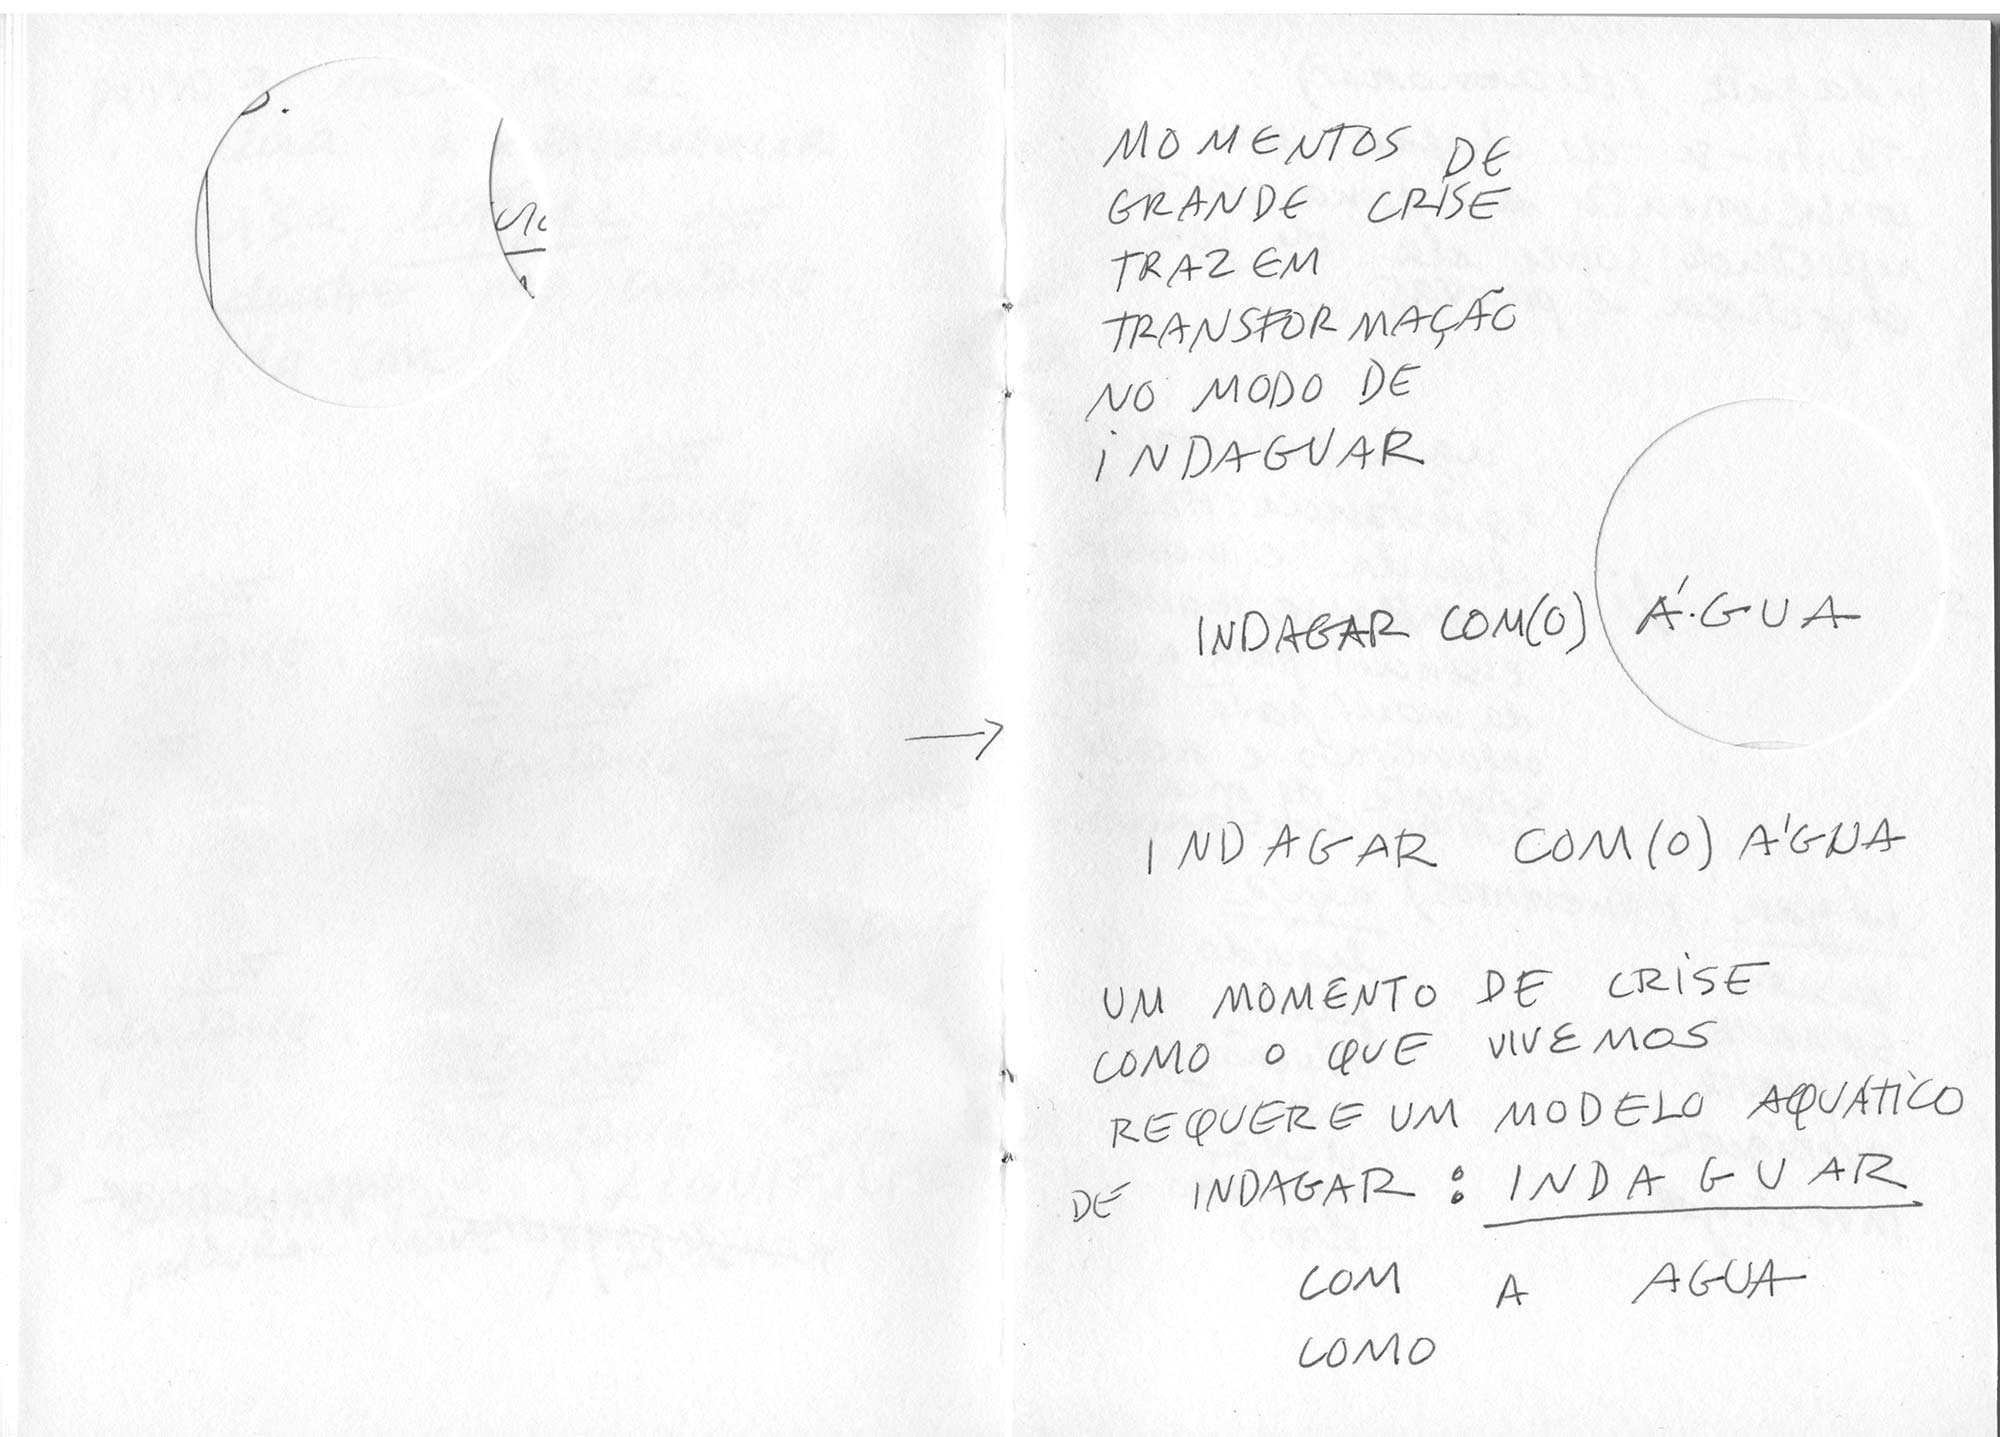 MOMENTOS DE
GRANDE CRISE
TRAZEM
TRANSFORMAÇÃO
NO MODO DE
INDAGUAR
INDAGAR COM(O) Á.GUA
→
INDAGAR COM(O) ÁGUA
UM MOMENTO DE CRISE
COMO O QUE VIVEMOS
REQUERE UM MODELO AQUÁTICO
DE INDAGAR : INDAGUAR
COM A AGUA
COMO